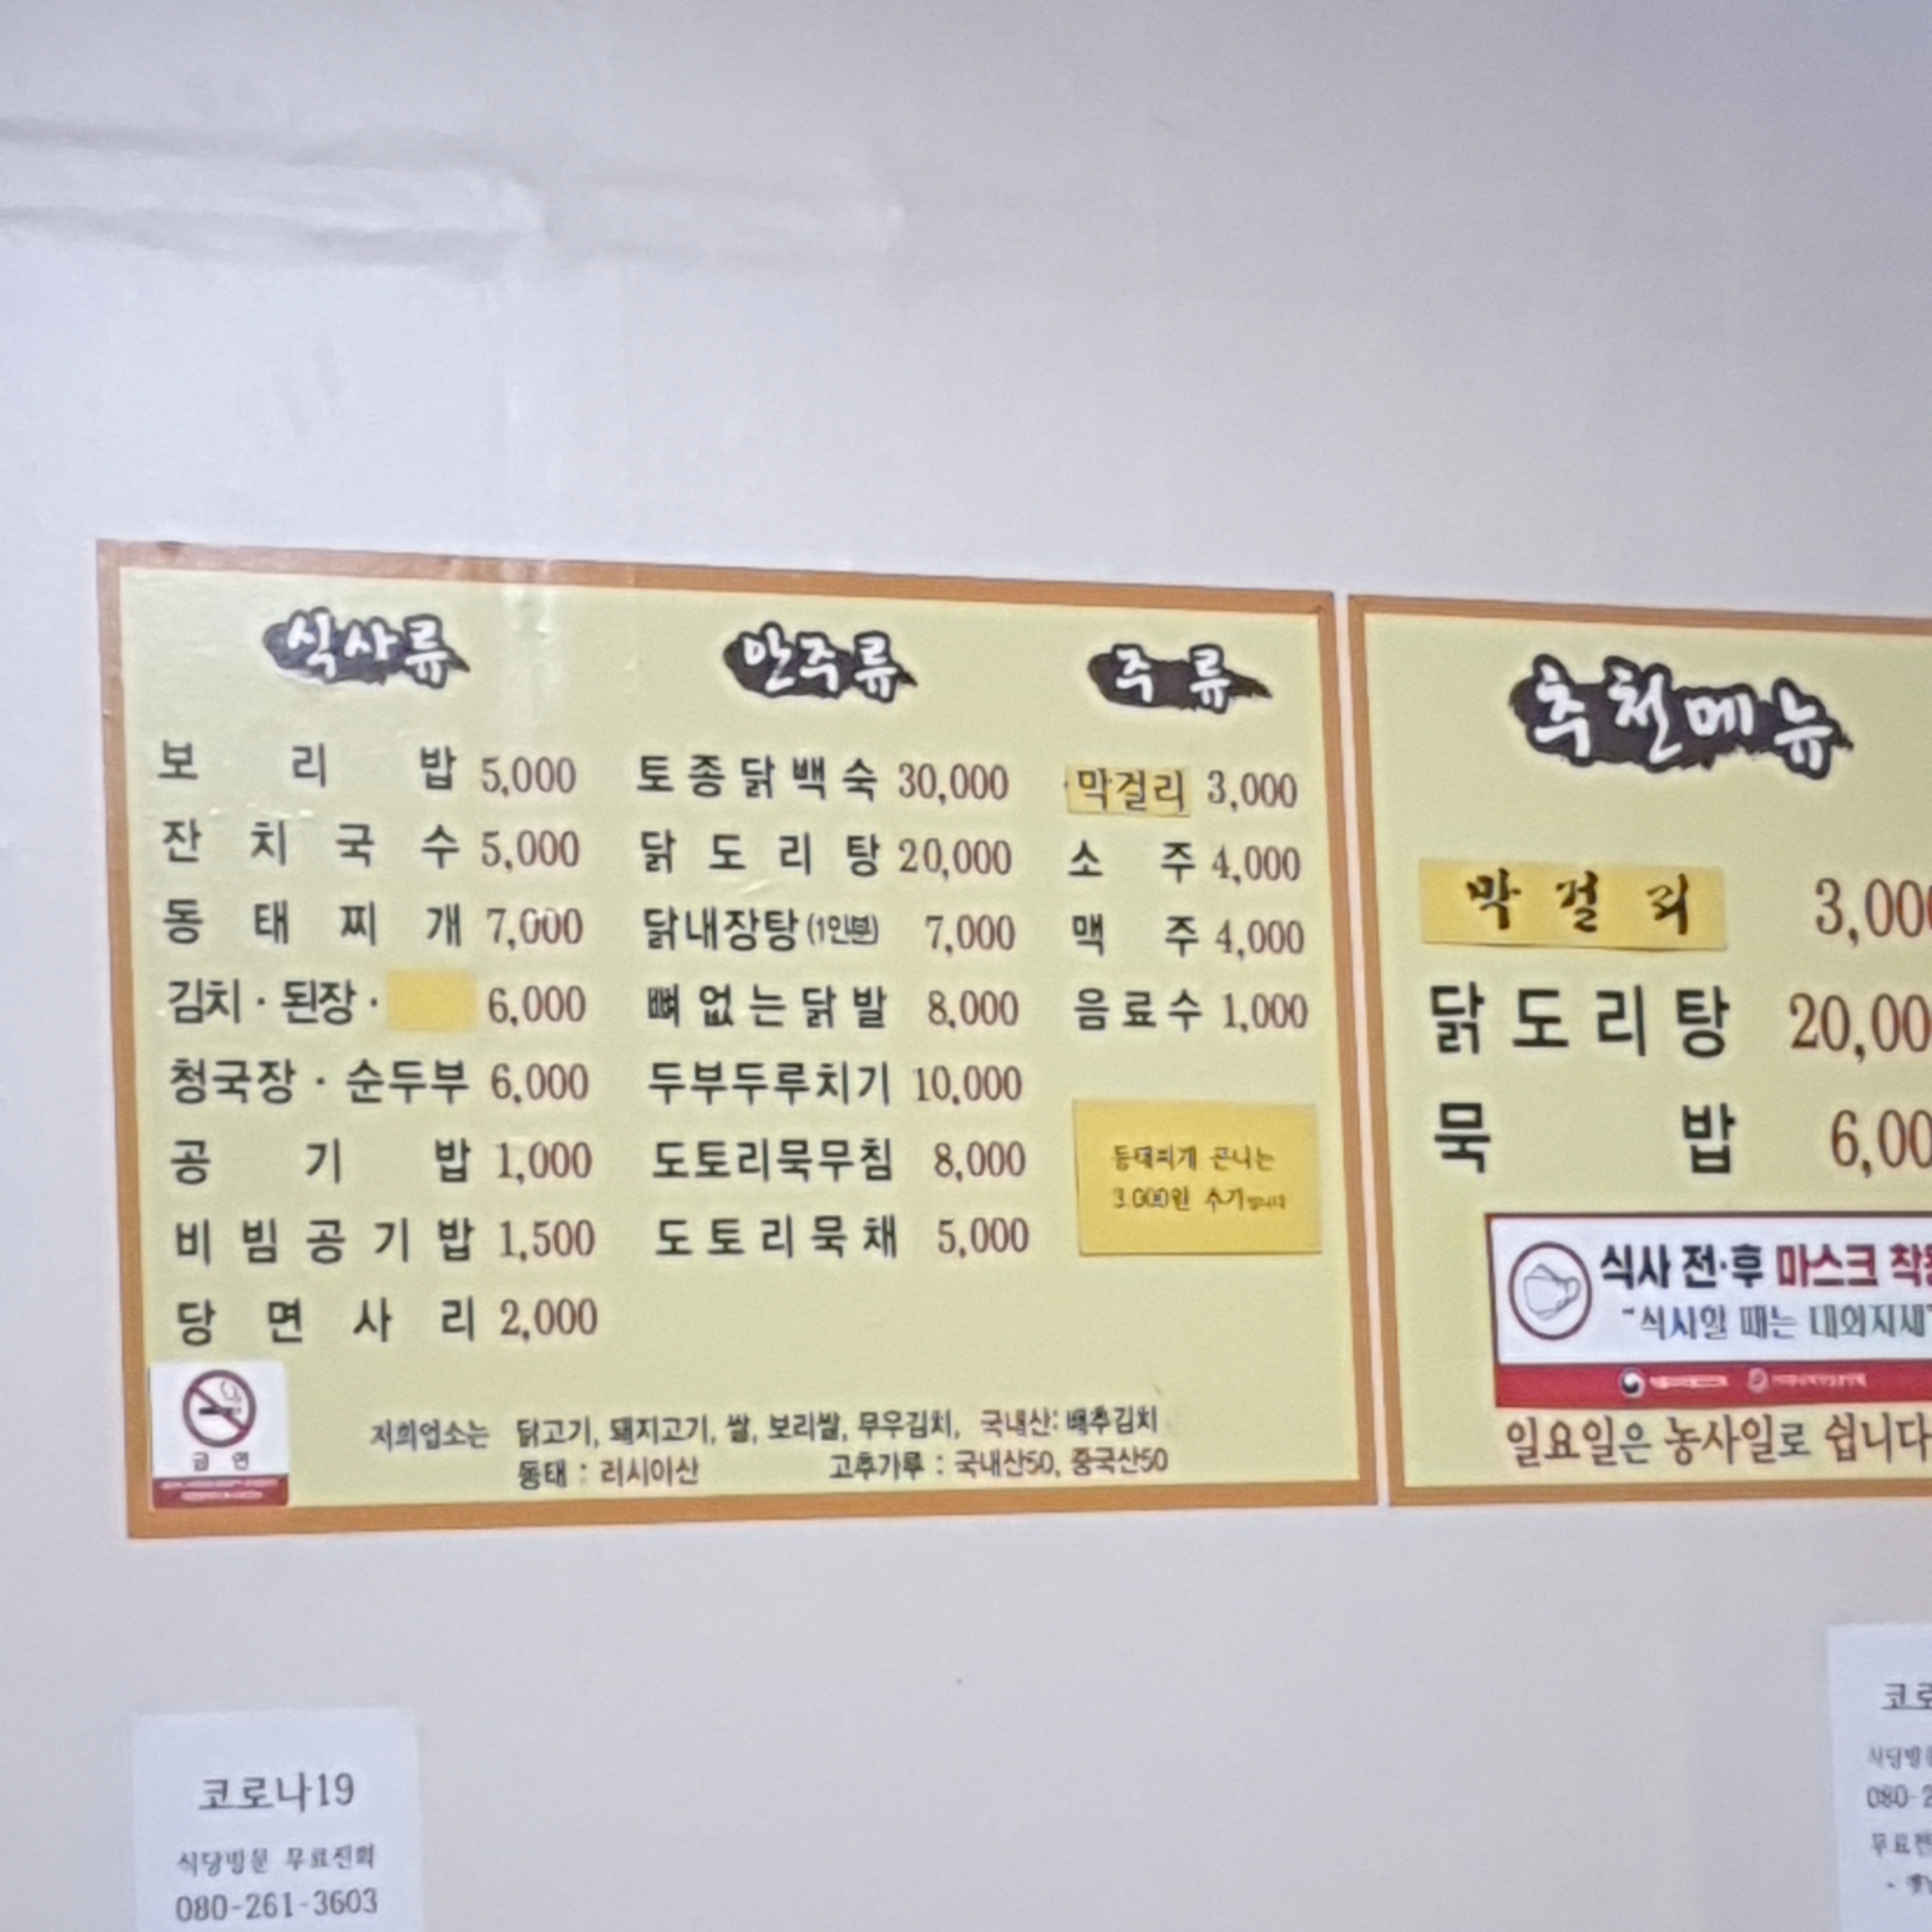 식사류
보리밥 5,000
잔치국수 5,000
동태찌개 7,000
김치 · 된장 · 6,000
청국장 · 순두부 6,000
공기밥 1,000
비빔공기밥 1,500
당면사리 2,000
안주류
토종닭백숙 30,000
닭도리탕 20,000
닭내장탕(1인분) 7,000
뼈없는닭발 8,000
두부두루치기 10,000
도토리묵무침 8,000
도토리묵채 5,000
주류
막걸리 3,000
소주 4,000
맥주 4,000
음료수 1,000
동태찌개 곤니는
3.000원 추가합니다
금연
저희업소는 닭고기, 돼지고기, 쌀, 보리쌀, 무우김치, 국내산: 배추김치
동태 : 러시아산 고추가루 : 국내산50, 중국산50
추천메뉴
막걸리 3,00
닭도리탕 20,00
묵밥 6,00
식사 전·후 마스크 착용
"식사할 때는 대화자제"
일요일은 농사일로 쉽니다
코로나19
식당방문 무료전화
080-261-3603
코로
식당방문
080-2
무료전